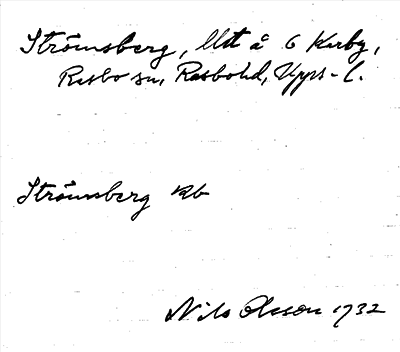 Strömsberg, llt å 6 Karby,
Rasbo sn, Rasbo hd, Upps. l.
Strömsberg Kb
Nils Olsson 1932